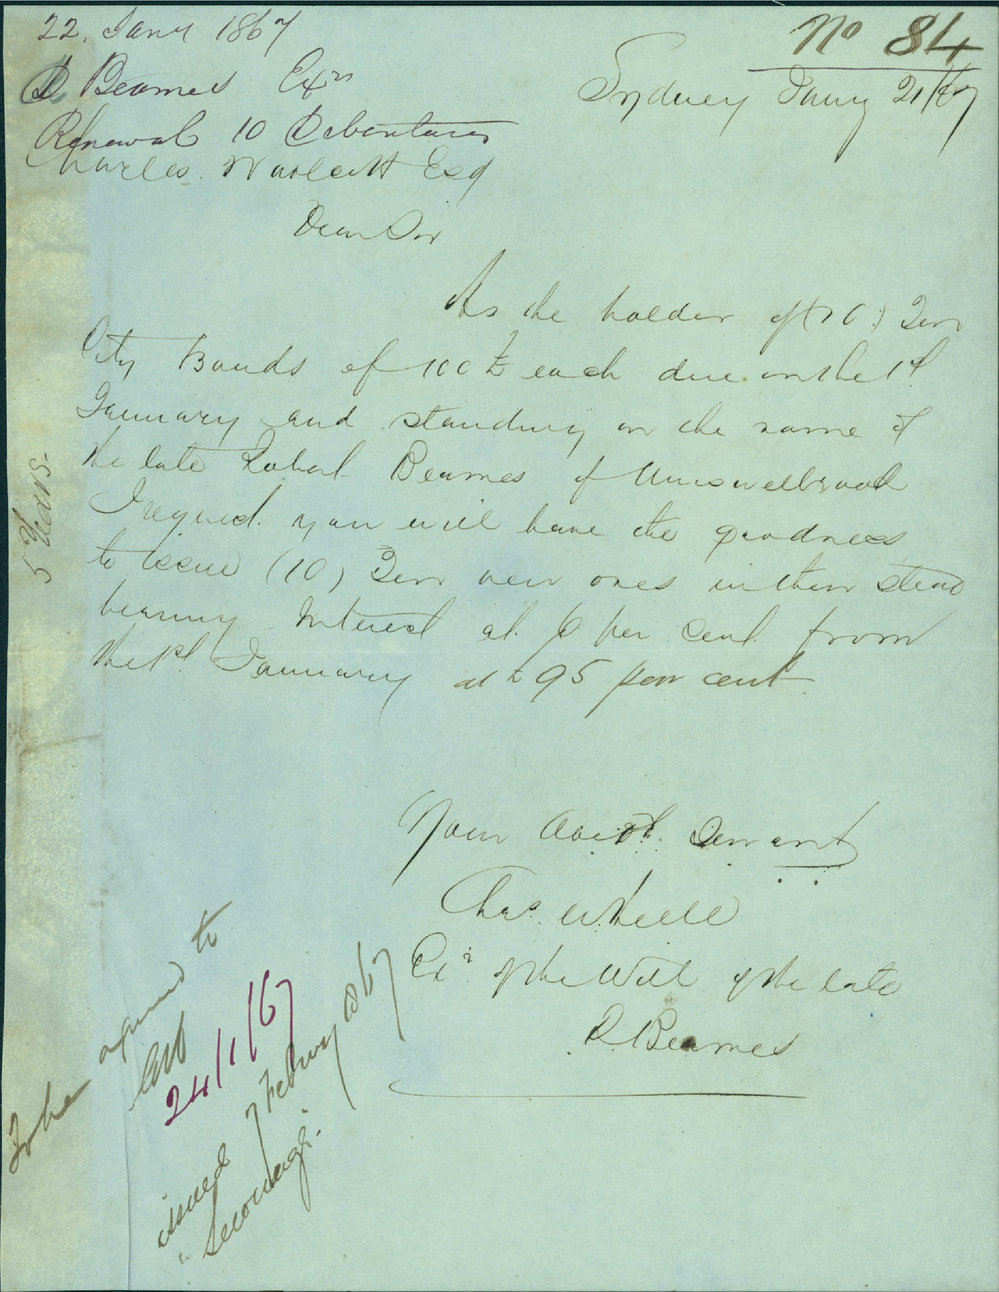 22. Jany 1867
No 84
R Beames Exrs
Sydney Jany 21/67
Renewal 10 Debentures
Charles Woolcott Esq
Dear Sir
As the holder of (10) Ten
City Bonds of 100 £ each due on the 1st
January and standing in the name of
the late Robert Beames of Muswellbrook
I request you will have the goodness
to issue (10) Ten new ones in their stead
bearing Interest at 6 per cent from
the 1st January at 95 per cent
5 Years
Your Obedt. Servant
Chas.
Exr of the Will of the late
R. Beames
To be agreed to
24/1/67
issued 7 Febury 1867